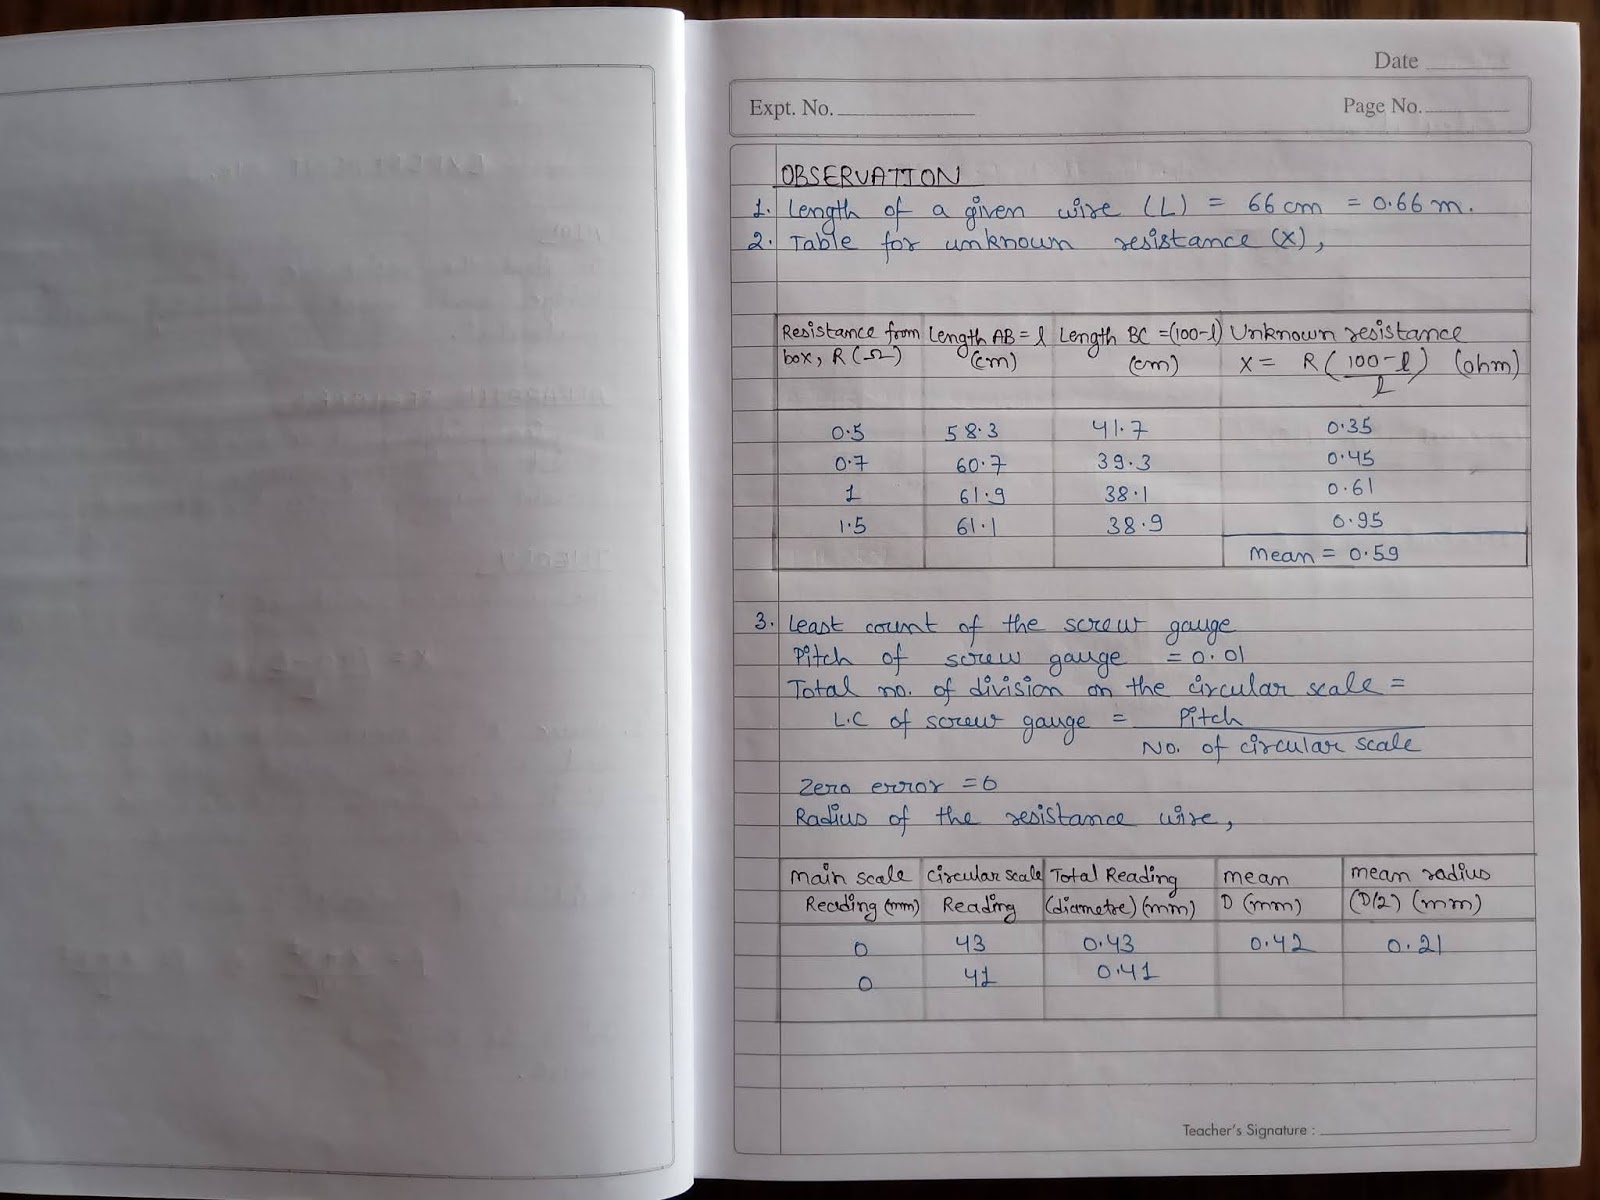 Date
Expt. No.
Page No.
OBSERVATION
1. Length of a given wire (L) = 66 cm = 0.66 m.
2. Table for unknown resistance (X),
Resistance from box, R (Ω) | Length AB = l (cm) | Length BC = (100-l) (cm) | Unknown resistance X = R(100-l/l) (ohm)
0.5 | 58.3 | 41.7 | 0.35
0.7 | 60.7 | 39.3 | 0.45
1 | 61.9 | 38.1 | 0.61
1.5 | 61.1 | 38.9 | 0.95
Mean = 0.59
3. Least count of the screw gauge
Pitch of screw gauge = 0.01
Total no. of division on the circular scale =
L.C of screw gauge = Pitch
No. of circular scale
Zero error = 0
Radius of the resistance wire,
Main scale Reading (mm) | circular scale Reading | Total Reading (diametre) (mm) | mean D (mm) | mean radius (D/2) (mm)
0 | 43 | 0.43 | 0.42 | 0.21
0 | 41 | 0.41
Teacher's Signature :